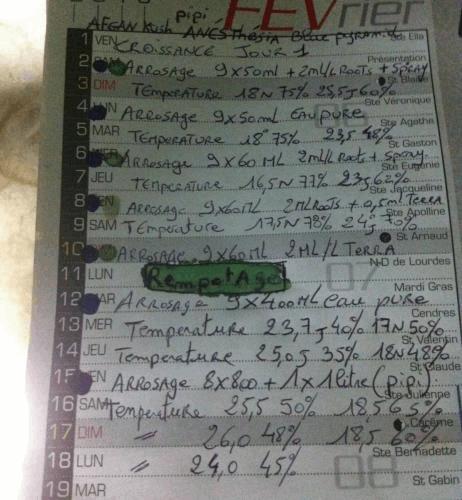 pipi FEVrier
AFGAN Kush ANESthésia Blue pyramid Ella
1 VEN CROISSANCE JOUR 1
Présentation
2 ARROSAGE 9x50ml + 2ml/L Roots + SPRAY
St Blaise
3 DIM TEmpERATURE 18N 75% 25,5J 60%
Ste Véronique
4 LUN ARROSAGE 9x50ML EAU PURE
Ste Agathe
5 MAR TEMPERATURE 18° 75% 23,5 48%
St Gaston
6 ARROSAGE 9x60 ML 2ml/L Roots + Spray
Ste Eugénie
7 JEU TEMPERATURE 16,5N 77% 23,5 62%
Ste Jacqueline
8 VEN ARROSAGE 9x60ML 2ML Roots + 0,5ml Terra
Ste Apolline
9 SAM TEMPERATURE 17,5N 78% 24J 70%
St Arnaud
10 ARROSAGE 9x60ML 2ML/L TERRA
N-D de Lourdes
11 LUN RempotAge 07
Mardi Gras
12 MAR ARROSAGE 9x400ML Eau PURE
Cendres
13 MER TempERATURE 23,7J 40% 17N 50%
St Valentin
14 JEU TempERATURE 25,0J 35% 18N 48%
St Claude
15 VEN ARROSAGE 8x800 + 1x1litre (pipi)
Ste Julienne
16 SAM TempERATURE 25,5 50% 18,5 65%
Carême
17 DIM " 26,0 48% 18,5 60%
Ste Bernadette
18 LUN " 24,0 45% 08
St Gabin
19 MAR